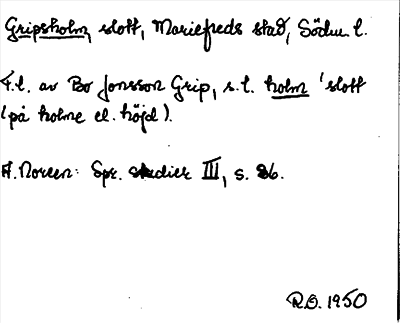 Gripsholm, slott, Mariefreds stad, Södm. l.
F.l. av Bo Jonsson Grip, s.l. holm 'slott
(på holme el. höjd).
A. Noreen: Spr. studier III, s. 86.
R.O. 1950